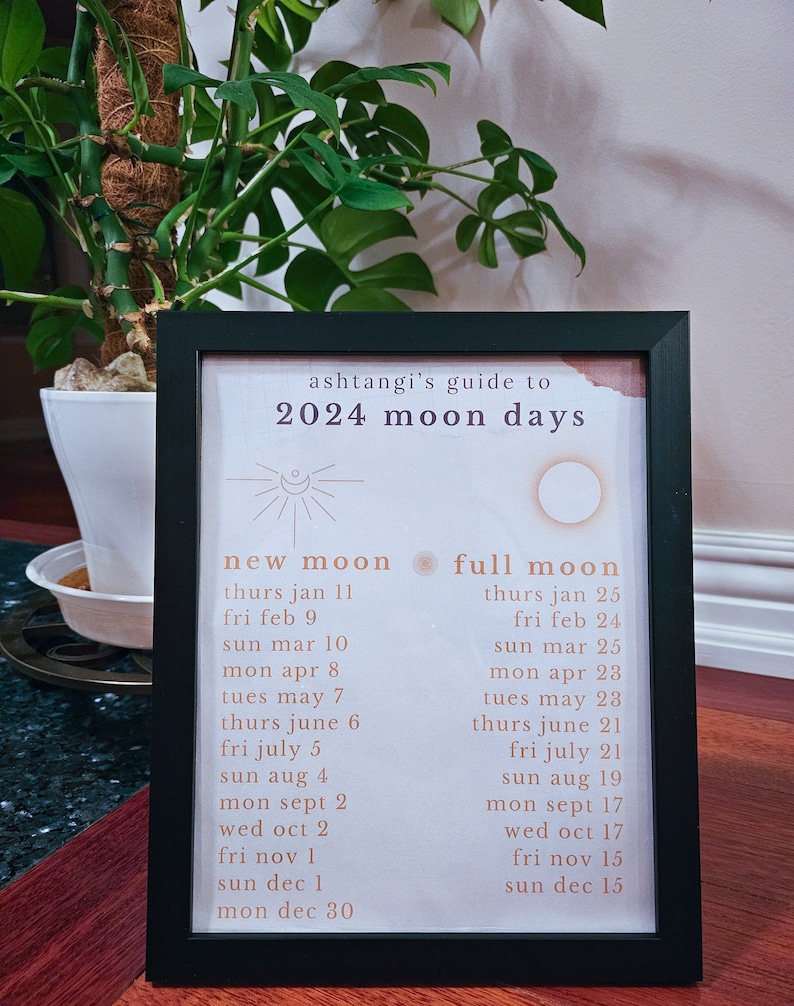 ashtangi's guide to
2024 moon days
new moon
thurs jan 11
fri feb 9
sun mar 10
mon apr 8
tues may 7
thurs june 6
fri july 5
sun aug 4
mon sept 2
wed oct 2
fri nov 1
sun dec 1
mon dec 30
full moon
thurs jan 25
fri feb 24
sun mar 25
mon apr 23
tues may 23
thurs june 21
fri july 21
sun aug 19
mon sept 17
wed oct 17
fri nov 15
sun dec 15